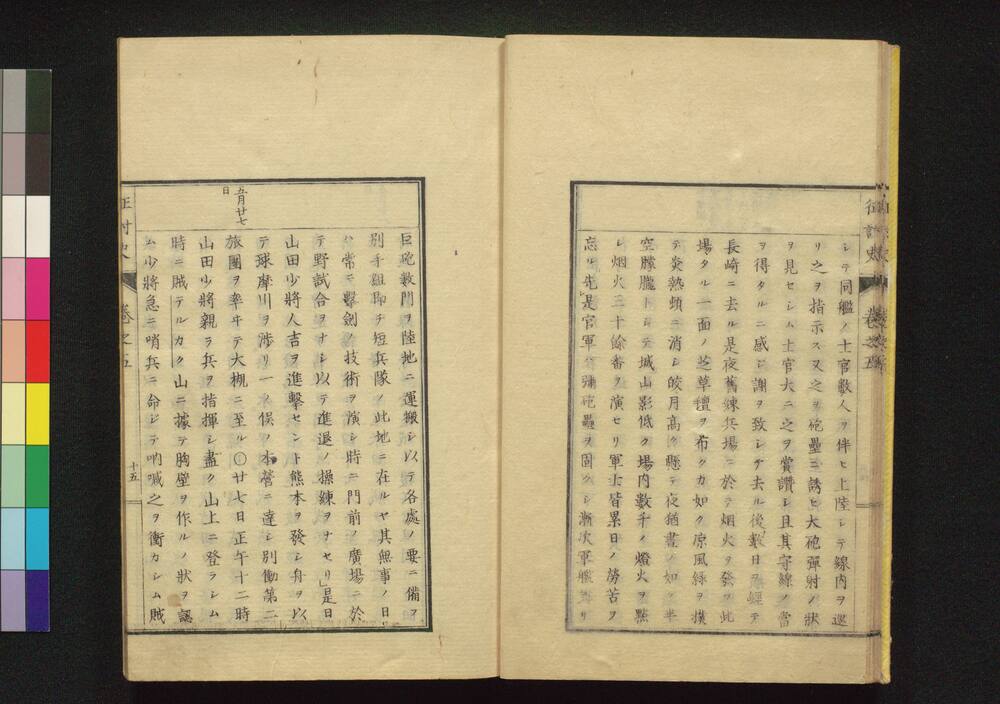 征討史
卷之五
シテ同艦ノ士官數人ヲ伴ヒ上陸シテ線内ヲ巡
リ之ヲ指示ス又之ヲ砲壘ニ誘ヒ大砲彈射ノ狀
ヲ見セシム士官大ニ之ヲ賞讚シ且其守線ノ當
ヲ得タルニ感シ謝ヲ致シテ去ル後數日ヲ經テ
長崎ニ去ル是夜舊練兵場ニ於テ烟火ヲ發ス此
場タル一面ノ芝草氊ヲ布クカ如ク凉風緑ヲ撲
テ炎熱頻ニ消シ皎月高ク懸テ夜猶晝ノ如シ半
空朦朧トシテ城山影低ク場内數千ノ燈火ヲ點
シ烟火三十餘番ヲ演セリ軍士皆累日ノ勞苦ヲ
忘ル先是官軍彌砲壘ヲ固クシ漸次軍艦ヨリ
五月廿七
日
巨砲數門ヲ陸地ニ運搬シ以テ各處ノ要ニ備フ
別手組即チ短兵隊ノ此地ニ在ルヤ其無事ノ日
ハ常ニ擊劍ノ技術ヲ演シ時ニ門前ノ廣場ニ於
テ野試合ヲナシ以テ進退ノ操練ヲナセリ」是日
山田少將人吉ヲ進擊セント熊本ヲ發シ舟ヲ以
テ球摩川ヲ渉リ一ノ俣ノ本營ニ達シ別働第二
旅團ヲ率ヰテ大槻ニ至ル〇廿七日正午十二時
山田少將親ラ兵ヲ指揮シ盡ク山上ニ登ラシム
時ニ賊テルカク山ニ據テ胸壁ヲ作ルノ狀ヲ認
ム少將急ニ哨兵ニ命シテ吶喊之ヲ衡カシム賊
征討史
卷之五
十五